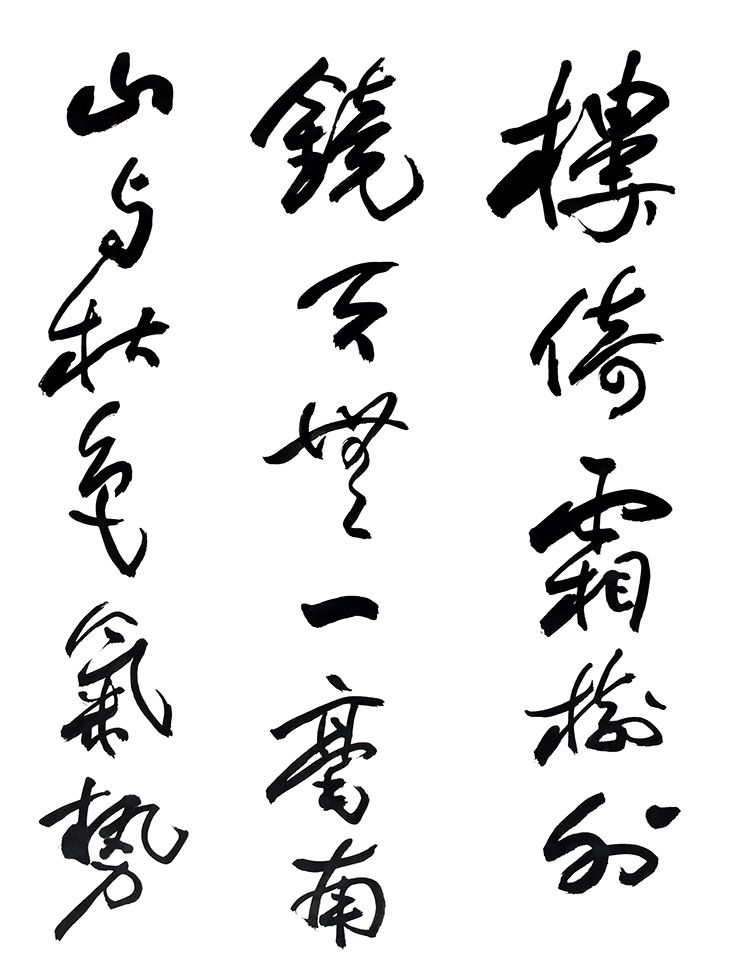 樓倚霜樹外
鏡天無一毫南
山与秋色氣勢